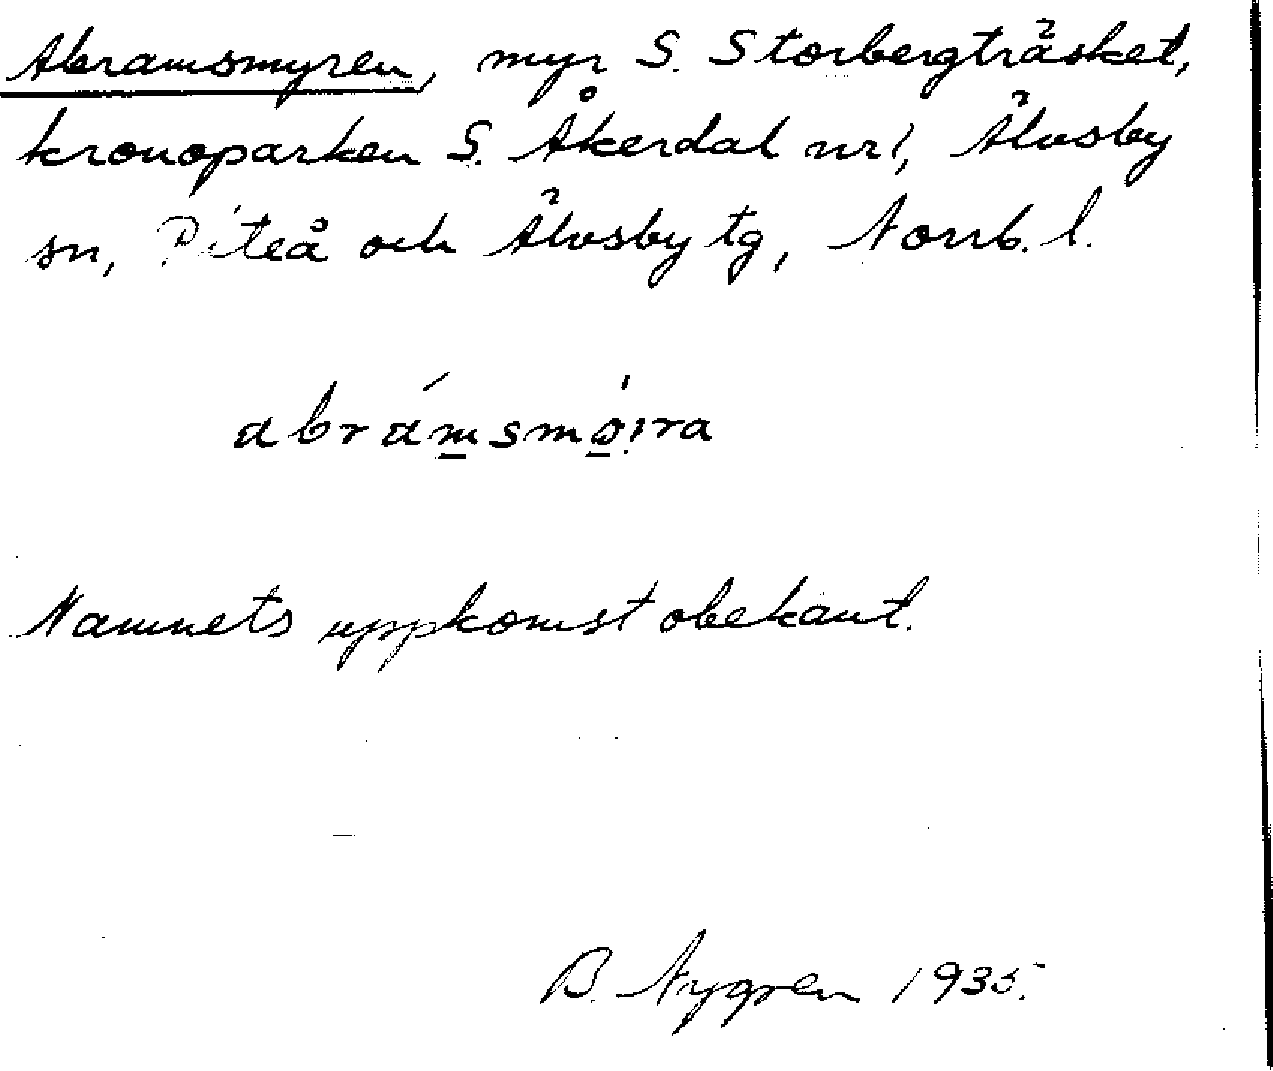 Abramsmyren, myr S. Storbergträsket,
kronoparken S. Åkerdal nr 1, Älvsby
sn, Piteå och Älvsby tg, Norrb. l.
abrámsmø̀ira
Namnets uppkomst obekant.
B. Nygren 1935.